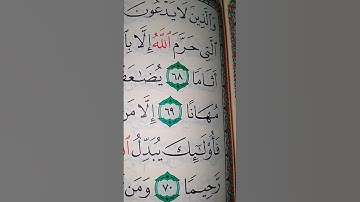 وَٱلَّذِينَ لَا يَدْعُونَ
ٱلَّتِى حَرَّمَ ٱللَّهُ إِلَّا بِٱ
أَثَامًا ٦٨ يُضَٰعَفْ
مُهَانًا ٦٩ إِلَّا مَن
فَأُو۟لَٰٓئِكَ يُبَدِّلُ ٱ
رَّحِيمًا ٧٠ وَمَن